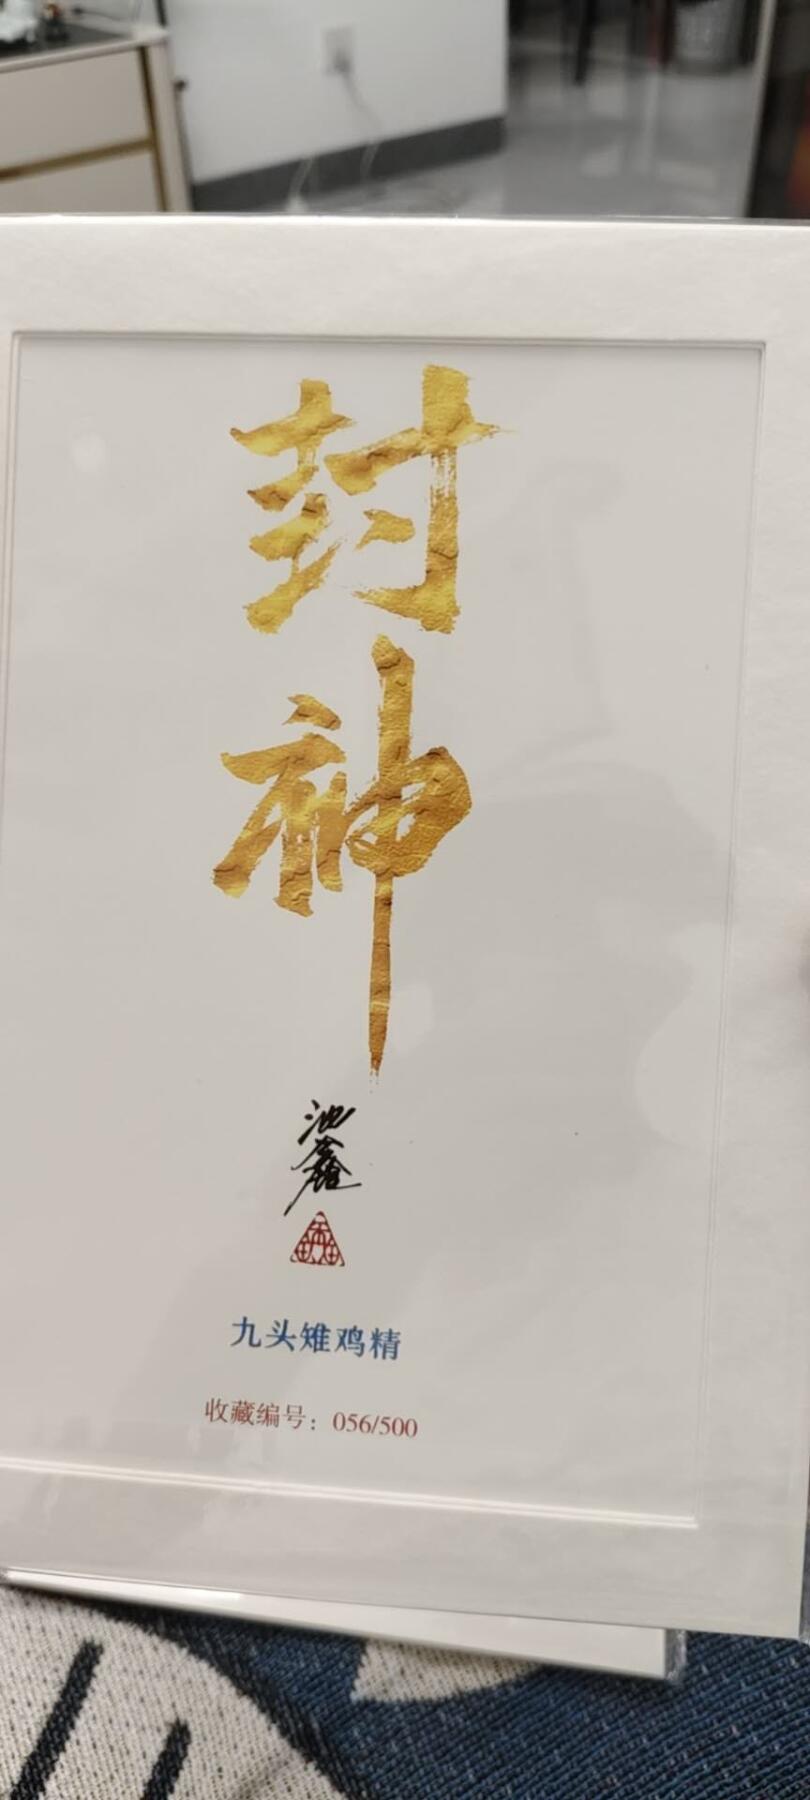 封神
池鑫
九头雉鸡精
收藏编号：056/500